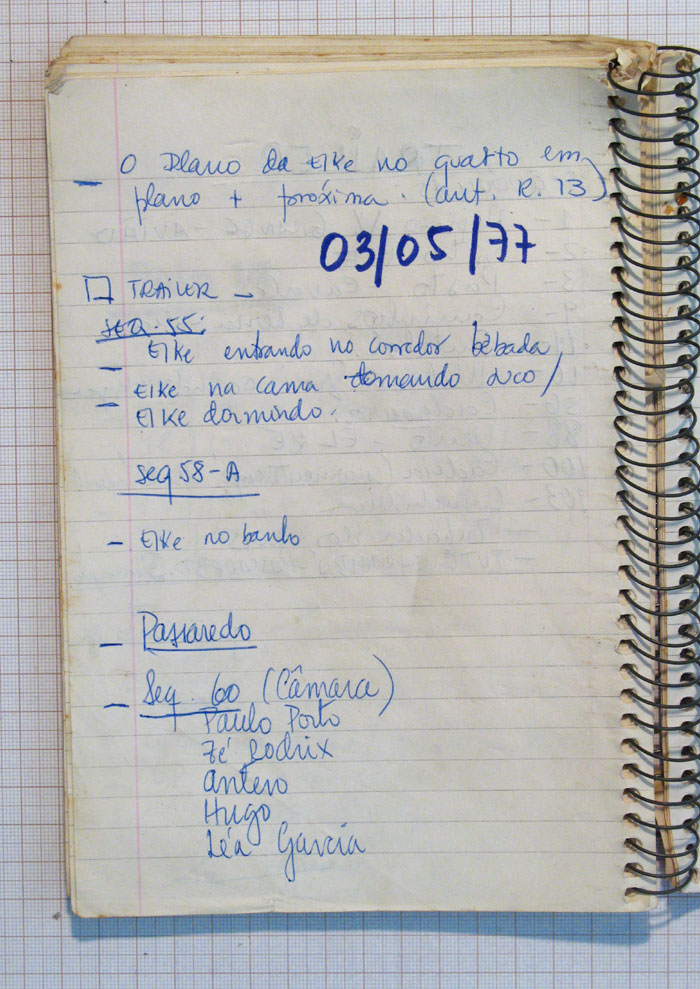 – O Plano da Elke no quarto em
plano + próxima. (ant. R. 13)
03/05/77
TRAILER –
seq. 55:
– Elke entrando no corredor bêbada
– Elke na cama tomando suco /
Elke dormindo.
seq 58-A
– Elke no banho
– Passaredo
– Seq. 60 (Câmara)
Paulo Porto
Zé Rodrix
Antero
Hugo
Léa Garcia